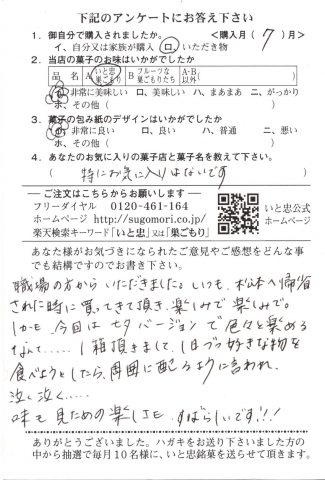 下記のアンケートにお答え下さい
1．御自分で購入されましたか。 ＜購入月（ 7 ）月＞
イ、自分又は家族が購入 ロ、いただき物
2．当店の菓子のお味はいかがでしたか
品名 A いと忠巣ごもり B フルーツな巣ごもりたち A・B以外（ ）
イ、非常に美味しい ロ、美味しい ハ、まあまあ ニ、がっかり
ホ、その他（ ）
3．菓子の包み紙のデザインはいかがでしたか
イ、非常に良い ロ、良い ハ、普通 ニ、悪い
ホ、その他（ ）
4．あなたのお気に入りの菓子店と菓子名を教えて下さい。
（ 特にお気に入りはないです ）
ご注文はこちらからお願いします
フリーダイヤル 0120-461-164
ホームページ http://sugomori.co.jp/
楽天検索ワード「いと忠」又は「巣ごもり」
いと忠公式
ホームページ
あなた様がお気づきになられたご意見やご感想をどんな事
でも結構ですのでお書き下さい。
職場の方からいただきました。いつも、松本へ帰省
された時に買ってきて頂き、楽しみで楽しみで。
しかも、今回は七夕バージョンで色々と楽める
なんて……1箱頂きまして、1日1つ好きな物を
食べようとしたら、周囲に配るように言われ、
泣く泣く……
味も見ための楽しさも、すばらしいです!!!
ありがとうございました。ハガキをお送り下さいました方の
中から抽選で毎月10名様に、いと忠銘菓を送らせて頂きます。